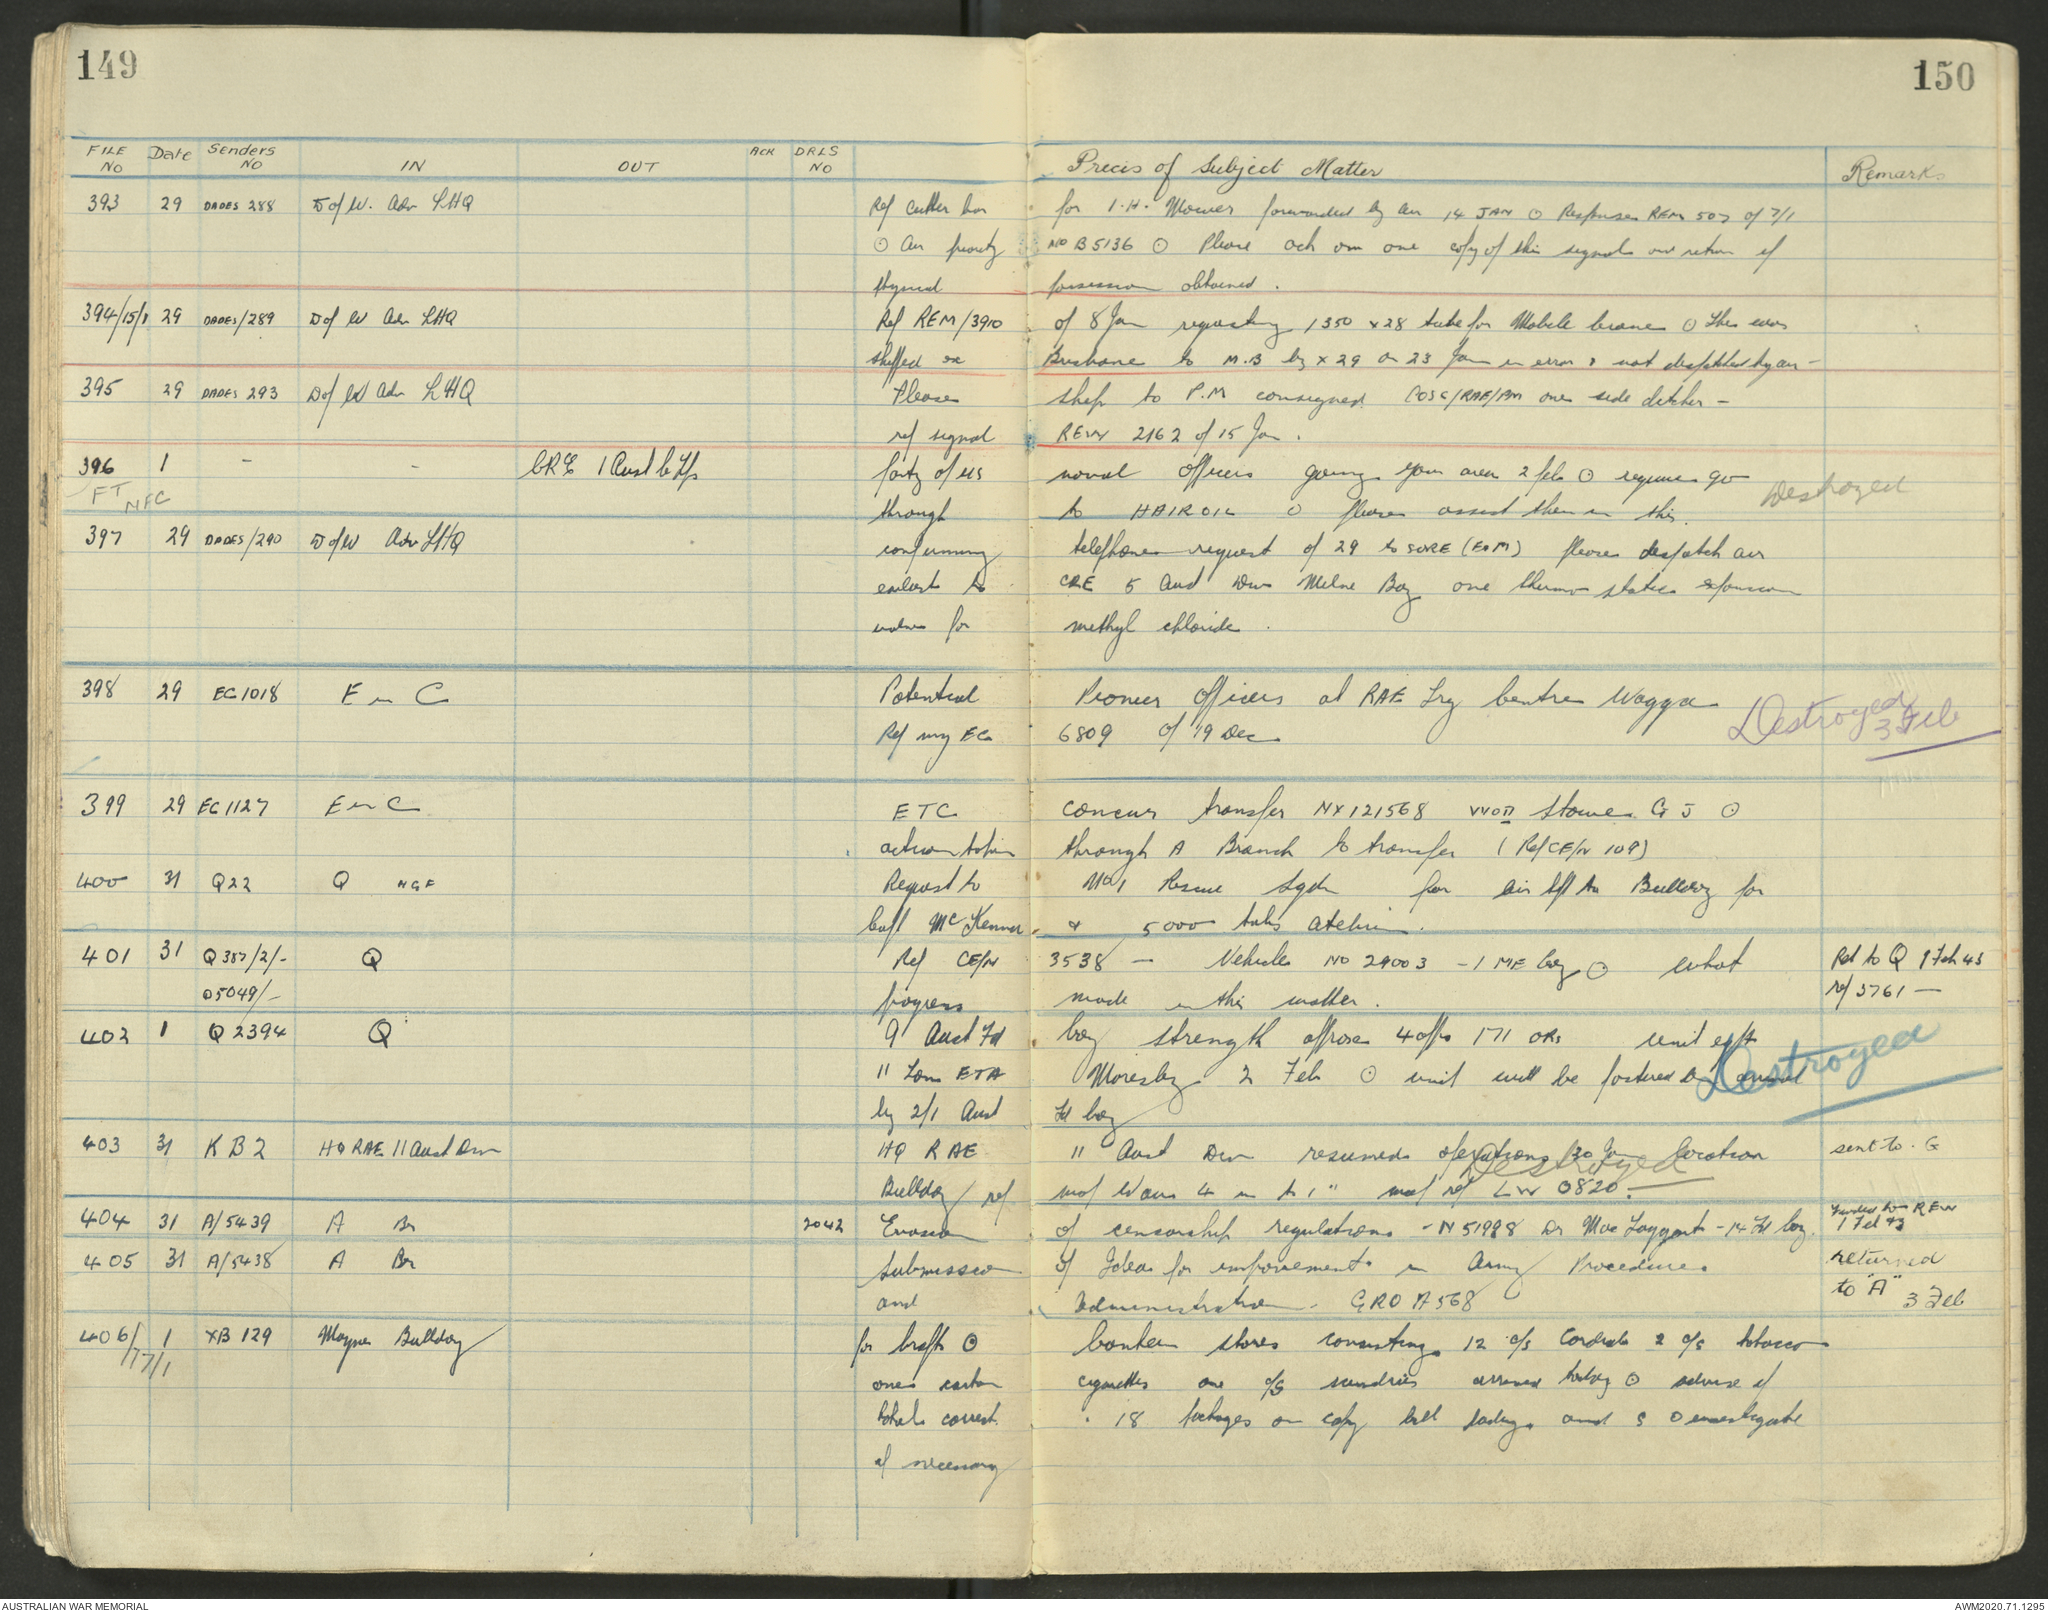 149
150
FILE NO Date Senders NO IN OUT ACK DRLS NO Precis of Subject Matter Remarks
393 29 DADES 288 D of W. Adv LHQ Ref cutter bar for I.H. Mower forwarded by air 14 JAN ⊙ REM 507 of 7/1
⊙ Air priority NO B5136 ⊙ Please ack on one copy of this signal and return if
possession obtained.
394/15/1 29 DADES/289 D of W Adv LHQ Ref REM/3910 of 8 Jan requesting 1350 x 28 tube for Mobile crane ⊙ This was
shipped ex Brisbane to M.B by X 29 on 23 Jan in error & not despatched by air -
395 29 DADES 293 D of W Adv LHQ Please ship to P.M consigned COSC/RAE/PM one side ditcher -
ref signal REW 2162 of 15 Jan.
396 1 - - CRE 1 Aust C Tps party of US naval officers going your area 2 feb ⊙ require go
FT NFC through to HAIROIL ⊙ please assist them in this. Destroyed
397 29 DADES/290 D of W Adv LHQ confirming telephone request of 29 to SORE (E&M) please despatch air
earliest to CRE 5 Aust Div Milne Bay one thermo static expansion
valve for methyl chloride.
398 29 EC1018 E in C Potential Pioneer Officers at RAE Trg Centre Wagga Destroyed 3 Feb
Ref my EC 6809 of 19 Dec
399 29 EC1127 E in C ETC concur transfer NX121568 WOII Stowe G J ⊙
action taken through A Branch to transfer (Ref CE/N 109)
400 31 Q22 Q NGF Request to No 1 Rescue Sqdn for air lift to Bulldog for
Capt McKenna & 5000 tabs atebrin.
401 31 Q387/2/- Q Ref CE/N 3538 - Vehicle NO 29003 - 1 ME Coy ⊙ what Ret to Q 1 Feb 43
05049/- progress made in this matter. ref 3761 -
402 1 Q2394 Q 9 Aust Fd Coy strength approx 4 offrs 171 ORs unit eqpt
11 Tons ETA Moresby 2 Feb ⊙ unit will be fostered on arrival Destroyed
by 2/1 Aust Fd Coy
403 31 KB2 HQ RAE 11 Aust Div HQ RAE 11 Aust Div resumed operations 30 Jan location sent to. G
Bulldog / ref map Wau 4 m to 1" map ref LW 0820. Destroyed
404 31 A/5439 A Br 2042 Evasion of censorship regulations - N51998 Dr Mac Taggart - 14 Fd Coy. REW 1 Feb 43
405 31 A/5438 A Br Submission of Ideas for improvements in Army Procedure returned
and administration. GRO A568 to "A" 3 Feb
406/17/1 1 XB 129 Mayne Bulldog for Craft ⊙ Canteen stores consisting 12 c/s Cordials 2 c/s tobacco
one carton cigarettes one c/s sundries arrived today ⊙ advise if
total correct. 18 packages on copy bill lading and investigate
if necessary
AUSTRALIAN WAR MEMORIAL
AWM2020.71.1295